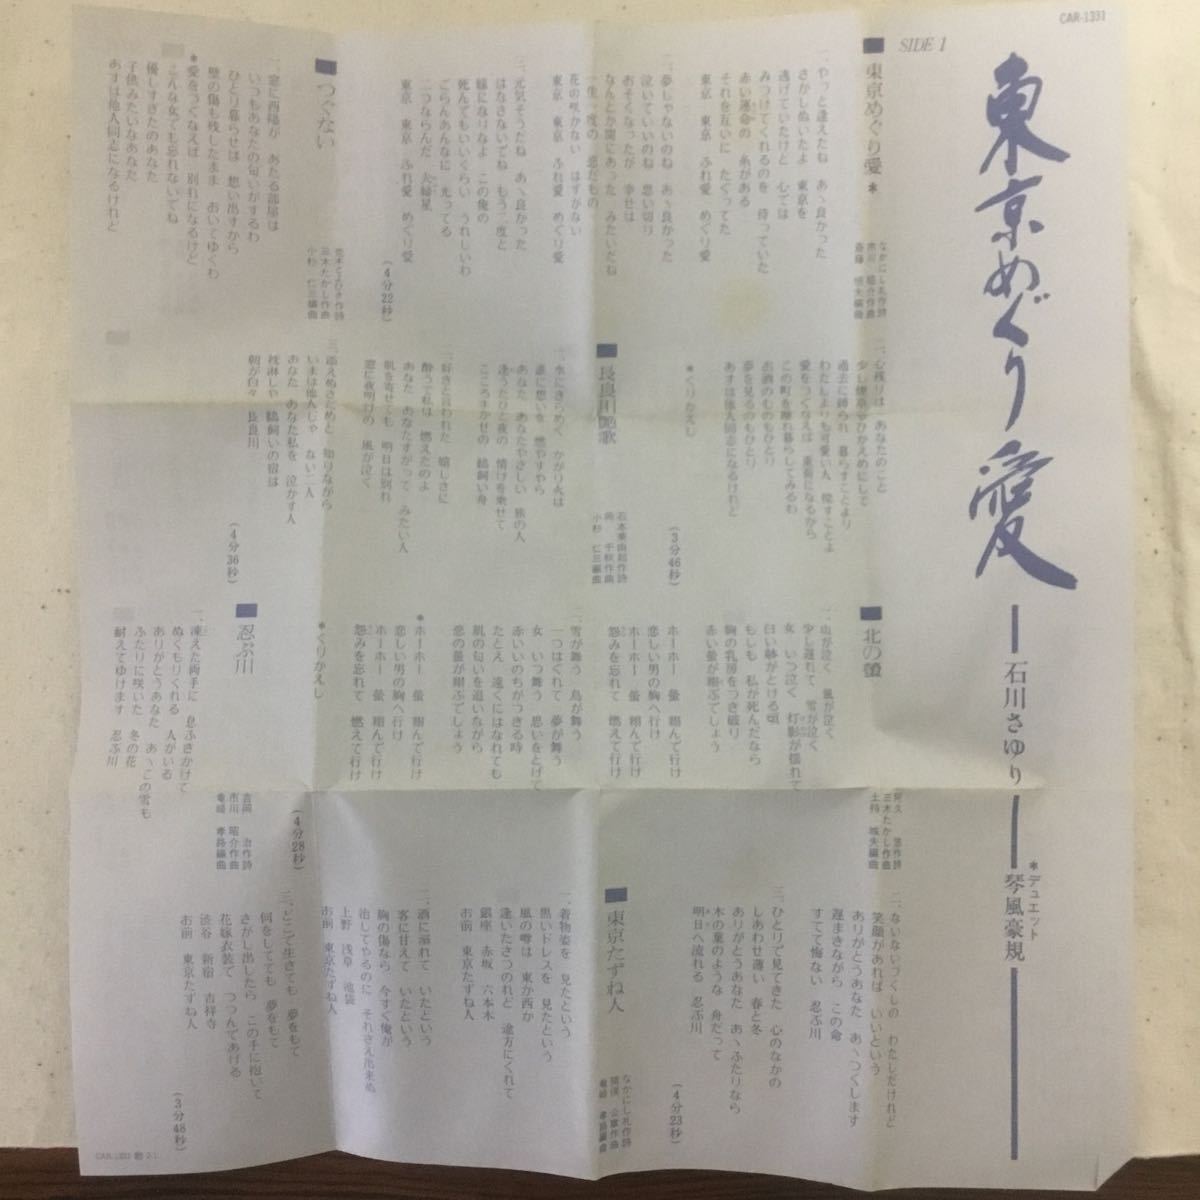 CAR-1331
東京めぐり愛
石川さゆり
*デュエット
琴風豪規
SIDE 1
東京めぐり愛*
なかにし礼作詩
市川 昭介作曲
斎藤 恒夫編曲
一、やっと逢えたね あゝ良かった
さがしぬいたよ 東京を
逃げていたけど 心では
みつけてくれるのを 待っていた
赤い運命の 糸がある
それを互いに たぐってた
東京 東京 ふれ愛 めぐり愛
二、夢じゃないのね あゝ良かった
泣いていいのね 思い切り
おそくなったが 幸せは
なんとか間にあった みたいだね
一生一度の 恋だもの
花の咲かない はずがない
東京 東京 ふれ愛 めぐり愛
三、元気そうだね あゝ良かった
はなさないでね もう二度と
嫁になりなよ この俺の
死んでもいいくらい うれしいわ
ごらんあんなに 光ってる
二つならんだ 夫婦星
東京 東京 ふれ愛 めぐり愛
(4分22秒)
つぐない
荒木とよひさ作詩
三木たかし作曲
小杉 仁三編曲
一、窓に西陽が あたる部屋は
いつもあなたの匂いがするわ
ひとり暮らせば 想い出すから
壁の傷も残したまま おいてゆくわ
*愛をつぐなえば 別れになるけど
こんな女でも忘れないでね
優しすぎたのあなた
子供みたいなあなた
あすは他人同志になるけれど
二、心残りは あなたのこと
少し煙草もひかえめにして
過去に縛られ 暮らすことより
わたしよりも可愛い人 探すことよ
愛をつぐなえば 重荷になるから
この町を離れ暮らしてみるわ
お酒のむのもひとり
夢を見るのもひとり
あすは他人同志になるけれど
*くりかえし
(3分46秒)
長良川艶歌
石本美由起作詩
岡 千秋作曲
小杉 仁三編曲
一、水にきらめく かがり火は
誰に想いを 燃やすやら
あなた あなたやさしい 旅の人
逢うたひと夜の 情けを乗せて
こころまかせの 鵜飼い舟
二、好きと言われた 嬉しさに
酔うて私は 燃えたのよ
あなた あなたすがって みたい人
肌を寄せても 明日は別れ
窓に夜明けの 風が泣く
三、添えぬさだめと 知りながら
いまは他人じゃ ない二人
あなた あなた私を 泣かす人
枕淋しや 鵜飼いの宿は
朝が白々 長良川
(4分36秒)
北の螢
阿久 悠作詩
三木たかし作曲
土持 城夫編曲
一、山が泣く 風が泣く
少し遅れて 雪が泣く
女 いつ泣く 灯影が揺れて
白い躰がとける頃
もしも 私が死んだなら
胸の乳房をつき破り
赤い螢が翔ぶでしょう
*ホーホー 螢 翔んで行け
恋しい男の胸へ行け
ホーホー 螢 翔んで行け
怨みを忘れて 燃えて行け
二、雪が舞う 鳥が舞う
一つはぐれて 夢が舞う
女 いつ舞う 思いをとげて
赤いいのちがつきる時
たとえ 遠くにはなれても
肌の匂いを追いながら
恋の螢が翔ぶでしょう
*ホーホー 螢 翔んで行け
恋しい男の胸へ行け
ホーホー 螢 翔んで行け
怨みを忘れて 燃えて行け
*くりかえし
(4分28秒)
忍ぶ川
吉岡 治作詩
市川 昭介作曲
竜崎 孝路編曲
一、凍えた両手に 息ふきかけて
ぬくもりくれる 人がいる
ありがとうあなた あゝこの雪も
ふたりに咲いた 冬の花
耐えてゆけます 忍ぶ川
二、ないないづくしの わたしだけれど
笑顔があれば いいという
ありがとうあなた あゝつくします
遅まきながら この命
すてて悔ない 忍ぶ川
三、ひとりで見てきた 心のなかの
しあわせ薄い 春と冬
ありがとうあなた あゝふたりなら
木の葉のような 舟だって
明日へ流れる 忍ぶ川
(4分23秒)
東京たずね人
なかにし礼作詩
公章作曲
竜崎 孝路編曲
一、着物姿を 見たという
黒いドレスを 見たという
風の噂は 東か西か
逢いたさつのれど 途方にくれて
銀座 赤坂 六本木
お前 東京たずね人
二、酒に溺れて いたという
客に甘えて いたという
胸の傷なら 今すぐ俺が
治してやるのに それさえ出来ぬ
上野 浅草 池袋
お前 東京たずね人
三、どこで生きても 夢をもて
何をしてても 夢をもて
さがし出したら この手に抱いて
花嫁衣装で つつんであげる
渋谷 新宿 吉祥寺
お前 東京たずね人
(3分48秒)